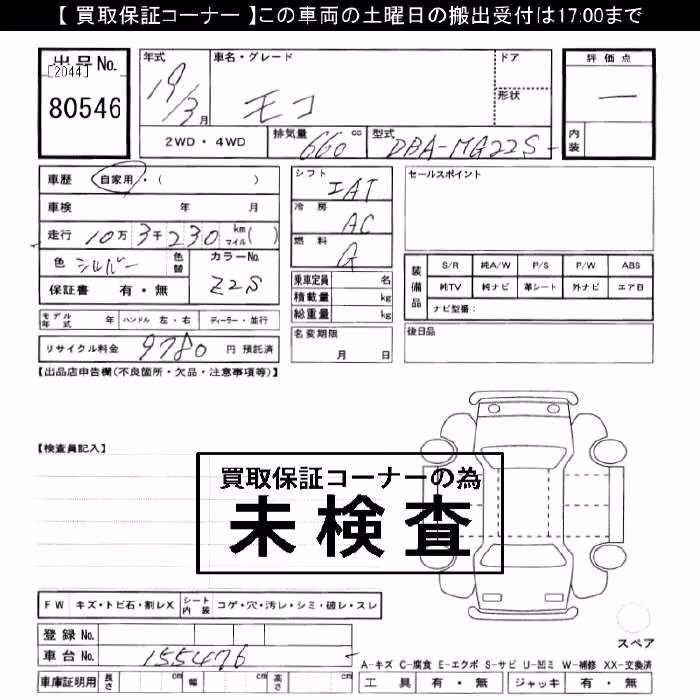 【 買取保証コーナー 】この車両の土曜日の搬出受付は17:00まで
出品No.
[2044]
80546
年式 19/3月
車名・グレード モコ
ドア
形状
評価点
—
内装
2WD・4WD
排気量 660 cc
型式 DBA-MG22S-
車歴 自家用・( )
車検 年 月
走行 10万3千230 km マイル( )
色 シルバー 色替
カラーNo. Z2S
保証書 有・無
シフト IAT
冷房 AC
燃料 G
乗車定員 名
積載量 kg
総重量 kg
名変期限 月 日
セールスポイント
装備品
S/R 純A/W P/S P/W ABS
純TV 純ナビ 革シート 外ナビ エアB
ナビ型番:
後日品
モデル年式 年 ハンドル 左・右 ディーラー・並行
リサイクル料金 9780 円 預託済
【出品店申告欄(不良箇所・欠品・注意事項等)】
【検査員記入】
買取保証コーナーの為
未検査
FW キズ・トビ石・割レX シート内装 コゲ・穴・汚レ・シミ・破レ・スレ
登録No.
車台No. 155476
車庫証明用 長さ cm 幅 cm 高さ cm
スペア
A-キズ C-腐食 E-エクボ S-サビ U-凹ミ W-補修 XX-交換済
工具 有・無 ジャッキ 有・無